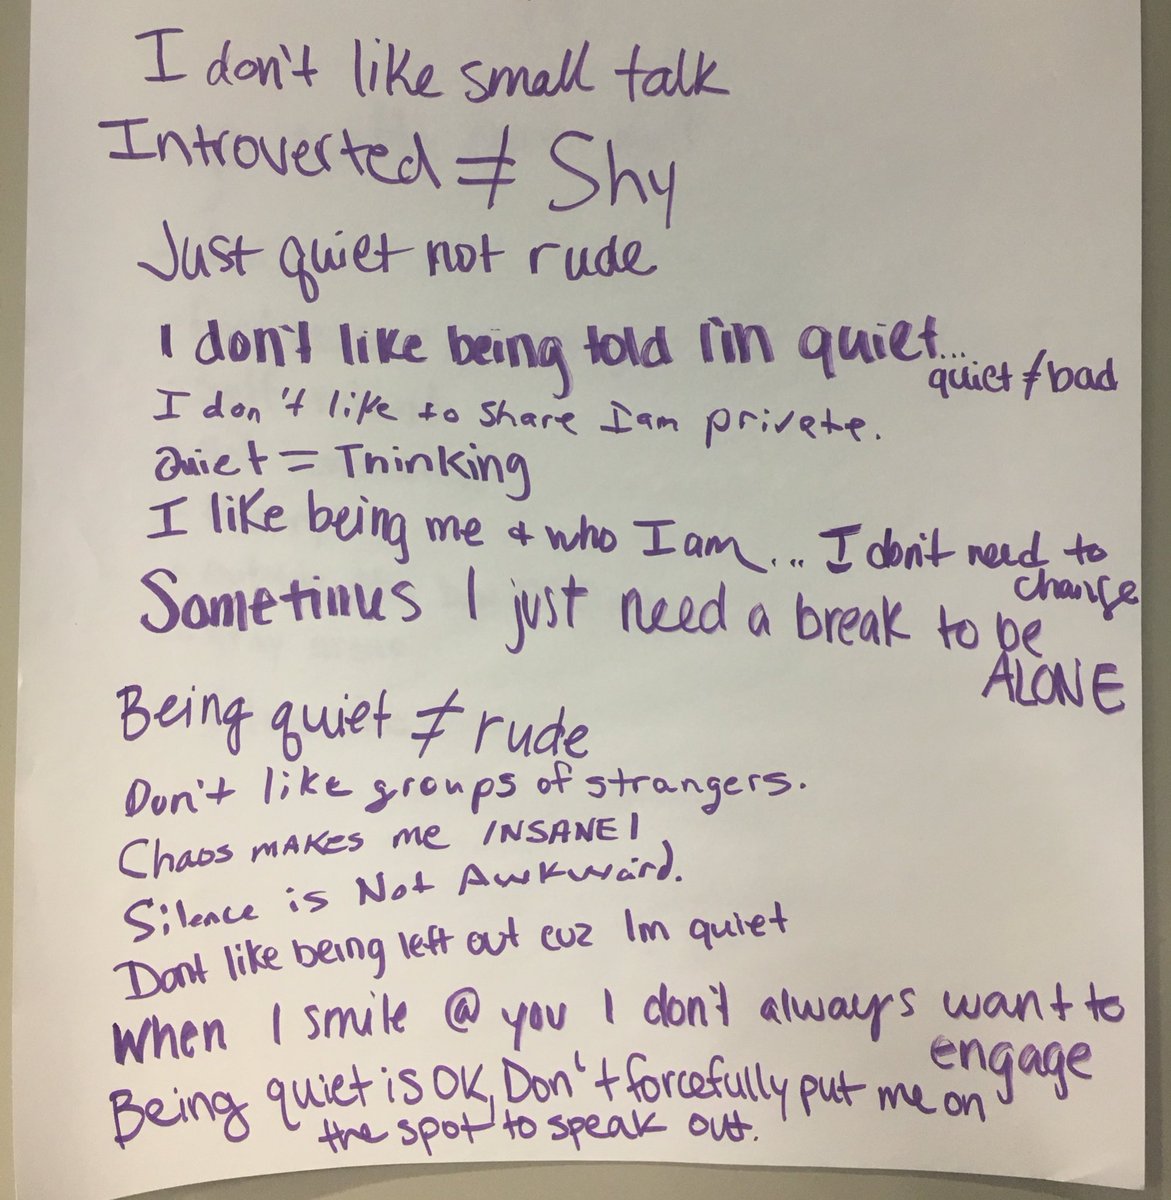 I don't like small talk
Introverted ≠ Shy
Just quiet not rude
I don't like being told I'm quiet...
quiet ≠ bad
I don't like to share I am private.
Quiet = Thinking
I like being me & who I am... I don't need to
change
Sometimes I just need a break to be
ALONE
Being quiet ≠ rude
Don't like groups of strangers.
Chaos MAKES me INSANE!
Silence is Not AwKward.
Dont like being left out cuz Im quiet
When I smile @ you I don't always want to
engage
Being quiet is OK, Don't forcefully put me on
the spot to speak out.